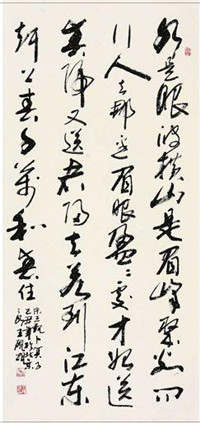 水是眼波横山是眉峰聚欲问
行人去那边眉眼盈〻處才始送
春归又送君归去若到江东
赶上春千萬和春住
宋王觀卜算子